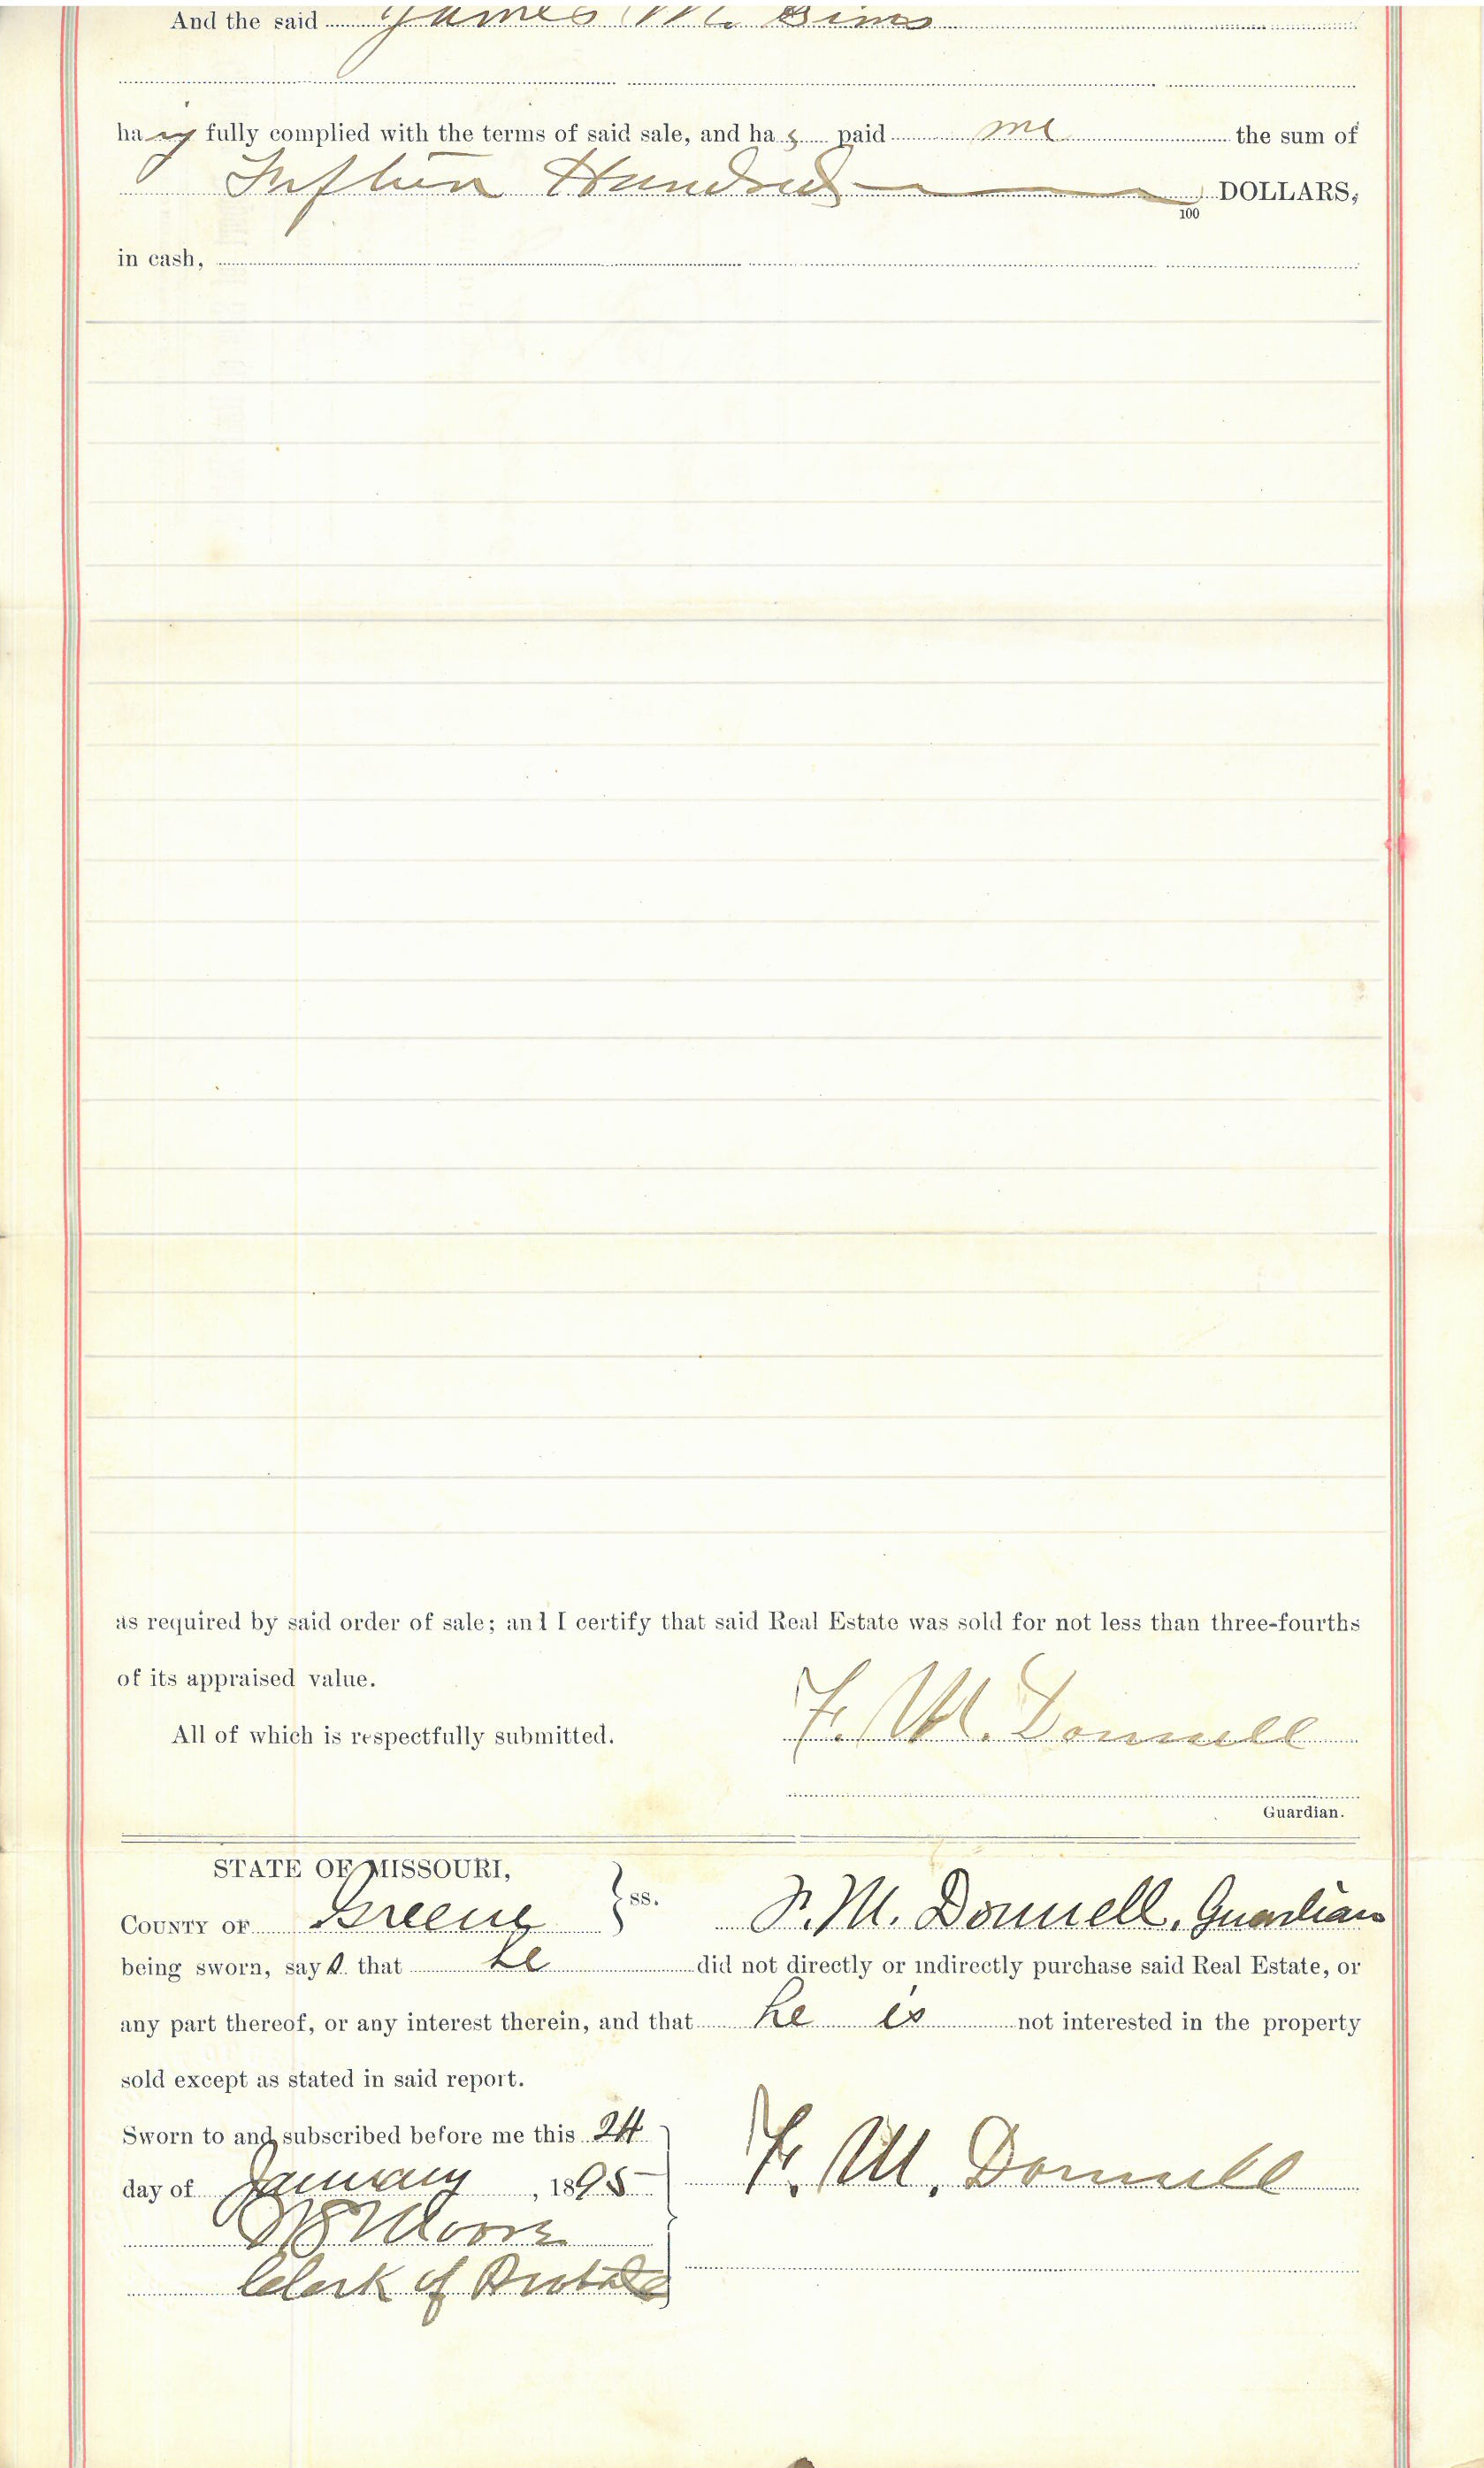 And the said James M. Sims
having fully complied with the terms of said sale, and has paid me the sum of
Fifteen Hundred DOLLARS,
100
in cash,
as required by said order of sale; and I certify that said Real Estate was sold for not less than three-fourths
of its appraised value.
All of which is respectfully submitted. F. M. Donnell
Guardian.
STATE OF MISSOURI,
COUNTY OF Greene } ss. F. M. Donnell, Guardian
being sworn, says that he did not directly or indirectly purchase said Real Estate, or
any part thereof, or any interest therein, and that he is not interested in the property
sold except as stated in said report.
Sworn to and subscribed before me this 24
day of January, 1895 F. M. Donnell
Moore
Clerk of Probate